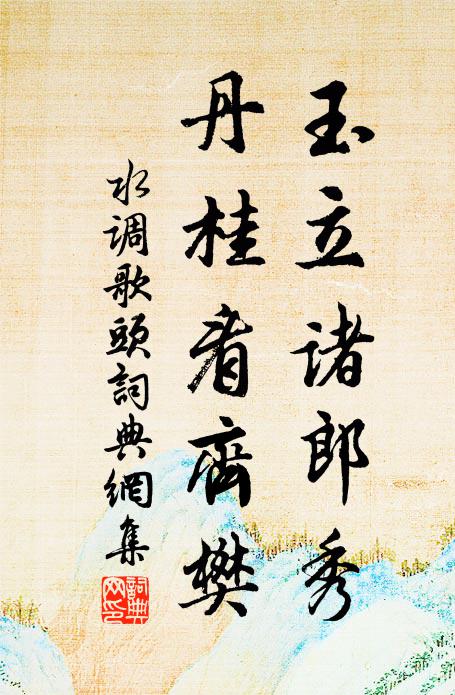 玉立诸郎秀
丹桂看齊樊
水调歌頭詞典網集